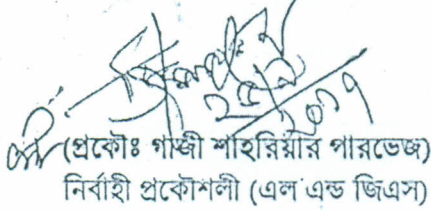 (প্রকৌঃ গাজী শাহরিয়ার পারভেজ)
নির্বাহী প্রকৌশলী (এল এন্ড জিএস)